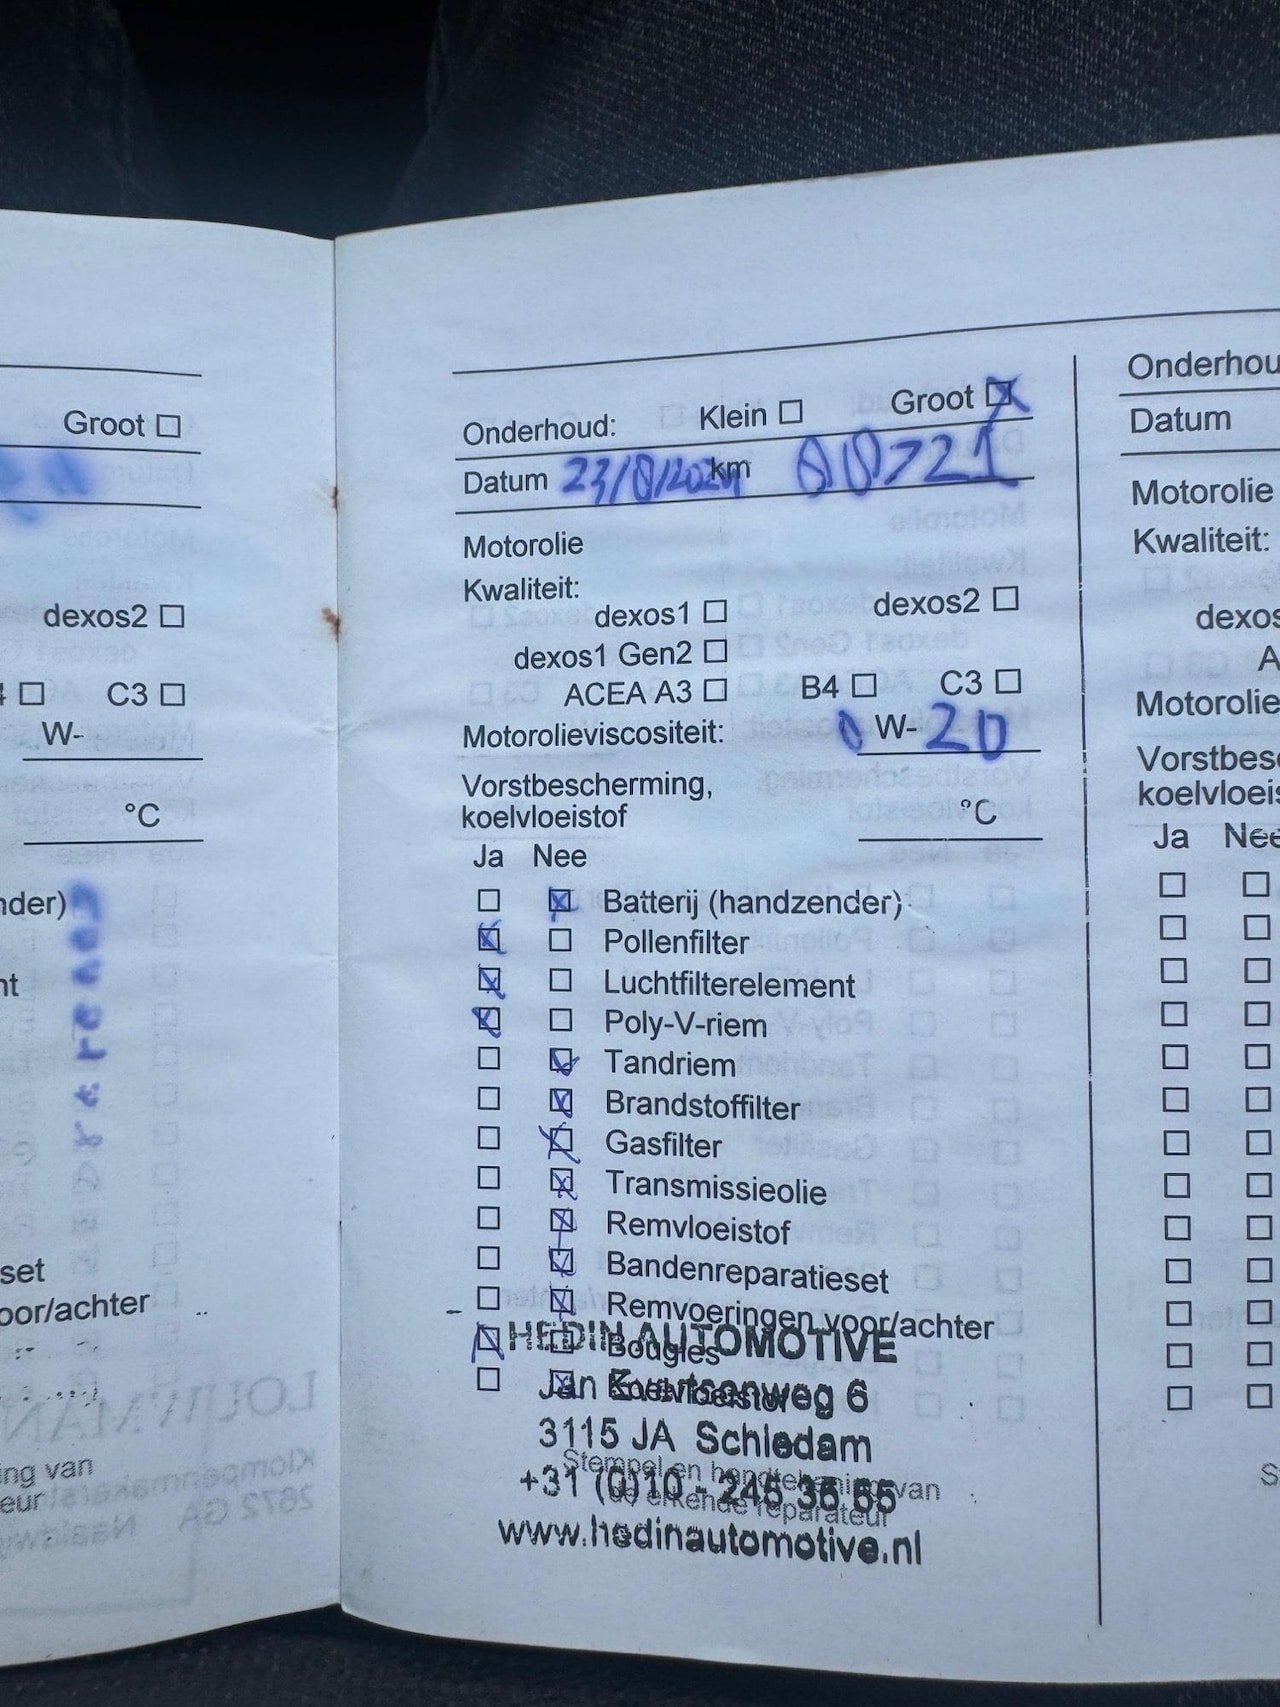 Groot ☐
dexos2 ☐
☐ C3 ☐
W-
°C
nder)
nt
set
oor/achter
ing van
eur
Onderhoud: Klein ☐ Groot ☒
Datum 23/8/2024 km
Motorolie
Kwaliteit:
dexos1 ☐ dexos2 ☐
dexos1 Gen2 ☐
ACEA A3 ☐ B4 ☐ C3 ☐
Motorolieviscositeit: 0 W- 20
Vorstbescherming,
koelvloeistof °C
Ja Nee
☐ ☒ Batterij (handzender)
☒ ☐ Pollenfilter
☒ ☐ Luchtfilterelement
☒ ☐ Poly-V-riem
☐ ☒ Tandriem
☐ ☒ Brandstoffilter
☐ ☒ Gasfilter
☐ ☒ Transmissieolie
☐ ☒ Remvloeistof
☐ ☒ Bandenreparatieset
☐ ☒ Remvoeringen voor/achter
☒ ☐ Bougies
☐ ☒ Koelvloeistof
HEDIN AUTOMOTIVE
Jan Evertsenweg 6
3115 JA Schiedam
Stempel en handtekening van
de erkende reparateur
+31 (0)10 - 245 36 55
www.hedinautomotive.nl
Onderhou
Datum
Motorolie
Kwaliteit:
dexos
A
Motorolie
Vorstbesc
koelvloeis
Ja Nee
S
LOUWMAN
Klompenmakerst
2672 GA Naaldwij